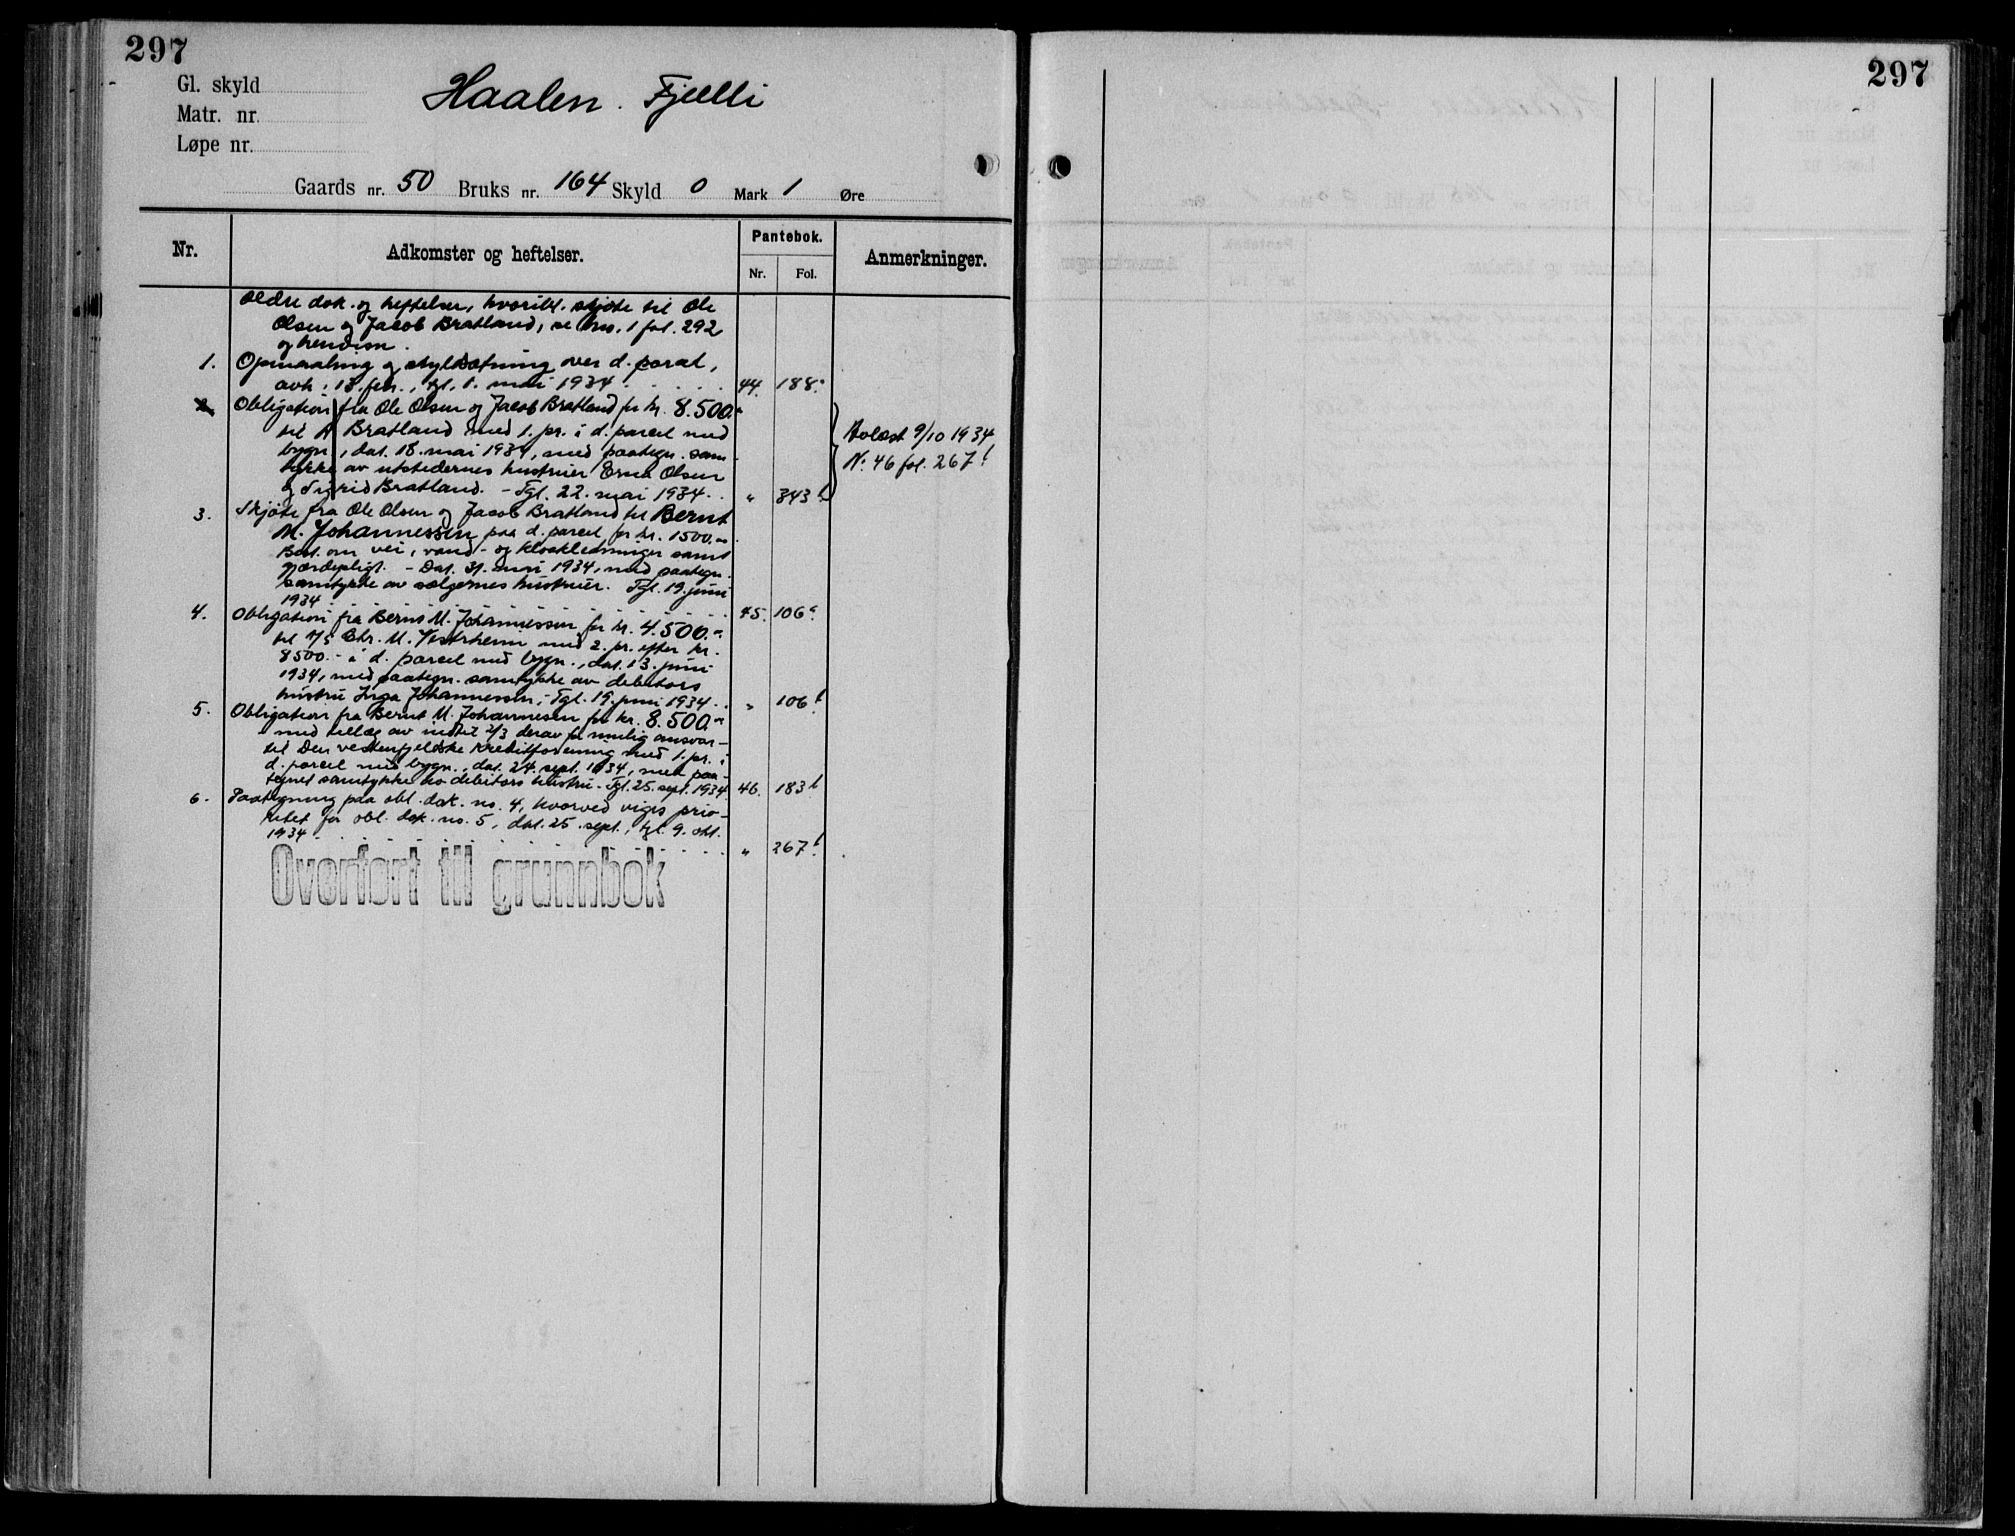 297
297
Gl. skyld
Matr. nr.
Løpe nr.
Haalen. Fjælli
Gaards nr. 50 Bruks nr. 164 Skyld 0 Mark 1 Øre
Nr.
Adkomster og heftelser.
Pantebok.
Nr. Fol.
Anmerkninger.
Ældre dok. og heftelser, hvoribl. skjøte til Ole
Olsen og Jacob Bratland, se bno. 1 fol. 292
og henvisn.
1. Opmaaling og skyldsætning over d. parcel,
avh. 13. febr., tgl. 1. mai 1934 44. 188a
2. Obligation fra Ole Olsen og Jacob Bratland for kr. 8.500.-
til A Bratland med 1. pr. i d. parcel med
bygn., dat. 18. mai 1934, med paategn. sam
tykke av utstedernes hustruer Erna Olsen
og Sigrid Bratland. - Tgl. 22. mai 1934. " 343b
Avlæst 9/10 1934
N: 46 fol. 267b
3. Skjøte fra Ole Olsen og Jacob Bratland til Bernt
M. Johannessen paa d. parcel for kr. 1500.-
Best. om vei, vand- og kloakledninger samt
gjærdepligt. - Dat. 31. mai 1934, med paategn.
samtykke av sælgernes hustruer. Tgl. 19. juni
1934 45. 106a
4. Obligation fra Bernt M. Johannessen for kr. 4.500.-
til A/S Chr. M. Vestrheim med 2. pr. efter kr.
8500.- i d. parcel med bygn., dat. 13. juni
1934, med paategn. samtykke av debitors
hustru Inga Johannessen, - Tgl. 19. juni 1934. " 106b
5. Obligation fra Bernt M. Johannesen for kr. 8.500.-
med tillæg av indtil 2/3 derav for mulig ansvar -
til Den vestenfjeldske kreditforening med 1. pr. i
d. parcel med bygn., dat. 24. sept. 1934, med paa-
tegnet samtykke av debitors hustru - Tgl. 25. sept. 1934. 46. 183b
6. Paategning paa obl. dok. no. 4, hvorved viges prio-
ritet for obl. dok. no. 5, dat. 25. sept., tgl. 9. okt.
1934 " 267b
Overført til grunnbok